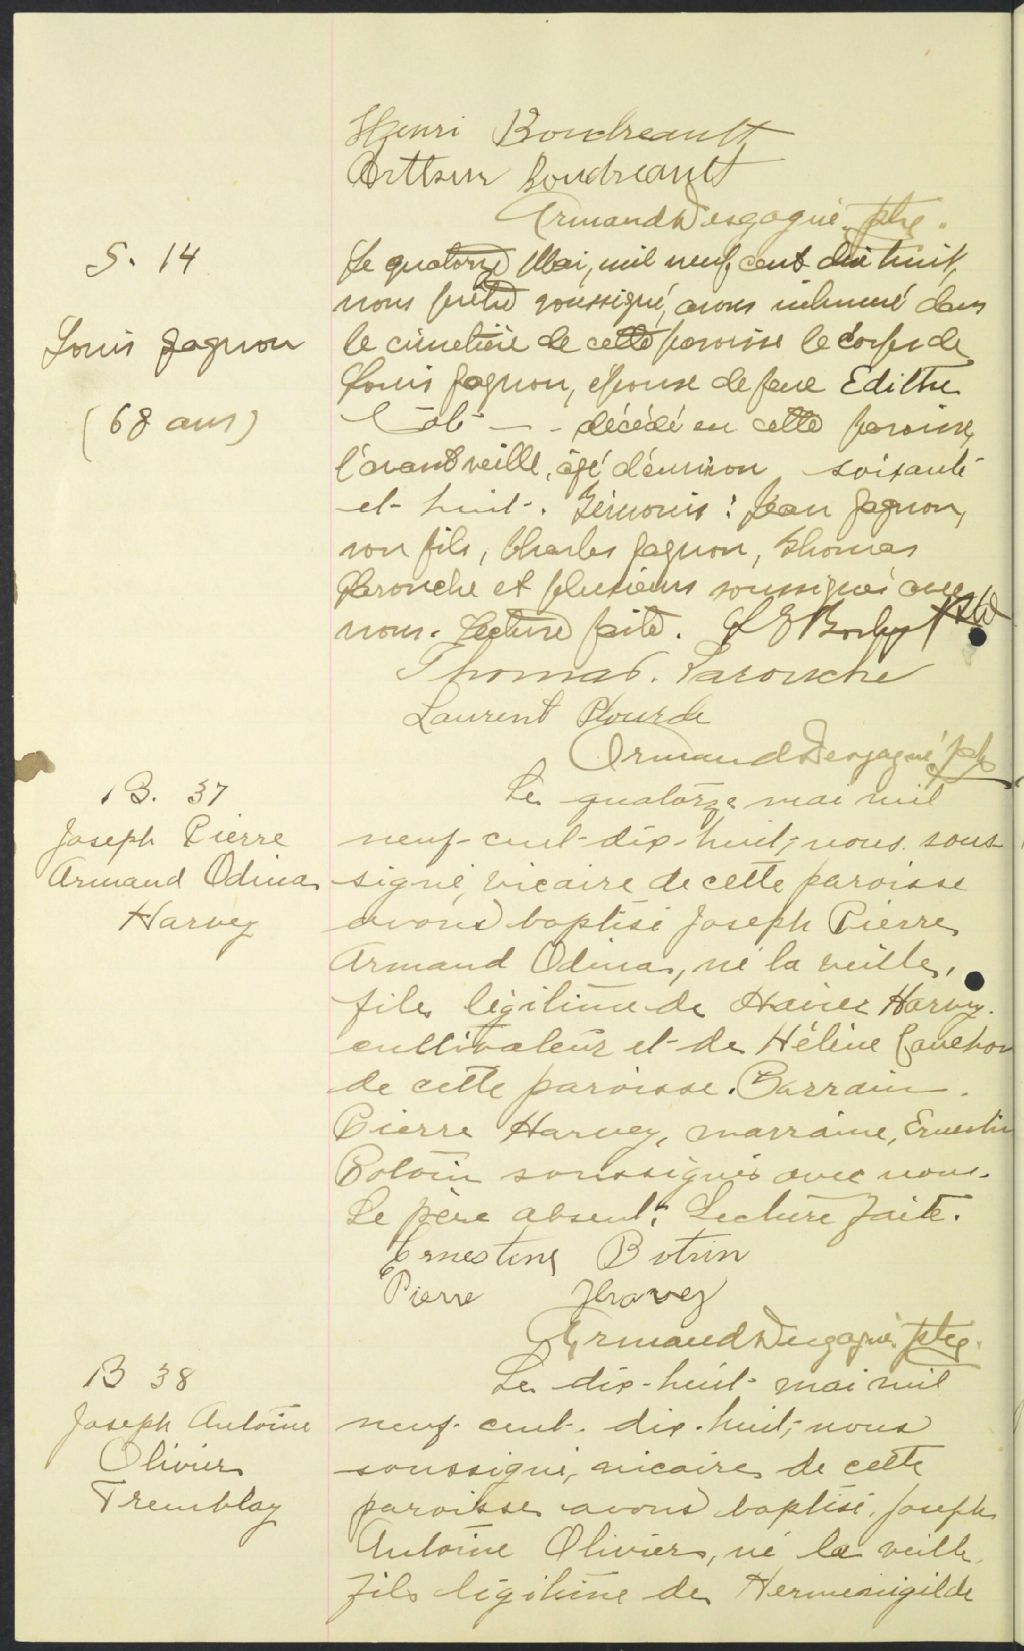 Henri Boudreault
Arthur Boudreault
Armand Desgagné ptre.
S. 14
Louis Gagnon
(68 ans)
Le quatorze Mai, mil neuf cent dix huit,
nous prêtre soussigné, avons inhumé dans
le cimetière de cette paroisse le corps de
Louis Gagnon, epoux de feue Edithe
Côté - - décédé en cette paroisse,
l'avant veille, âgé d'environ soixante
et huit. Témoins : Jean Gagnon,
son fils, Charles Gagnon, Thomas
Larouche et plusieurs soussignés avec
nous. Lecture faite.
Thomas. Larouche
Laurent Plourde
Armand Desgagné ptre
B. 37
Joseph Pierre
Armand Odina
Harvey
Le quatorze mai mil
neuf-cent-dix-huit, nous sous
signé, vicaire de cette paroisse
avons baptisé Joseph Pierre
Armand Odina, né la veille,
fils légitime de Harvey
cultivateur et de Hélène Cauchon
de cette paroisse. Parrain
Pierre Harvey, marraine, Ernestin
Potvin soussignés avec nous.
Le père absent. Lecture faite.
Ernestine Potvin
Pierre Harvey
Armand Desgagné ptre.
B 38
Joseph Antoine
Olivier
Tremblay
Le dix-huit mai mil
neuf-cent-dix-huit, nous
soussigné, vicaire de cette
paroisse avons baptisé, Joseph
Antoine Olivier, né la veille,
fils légitime de Hermenigilde